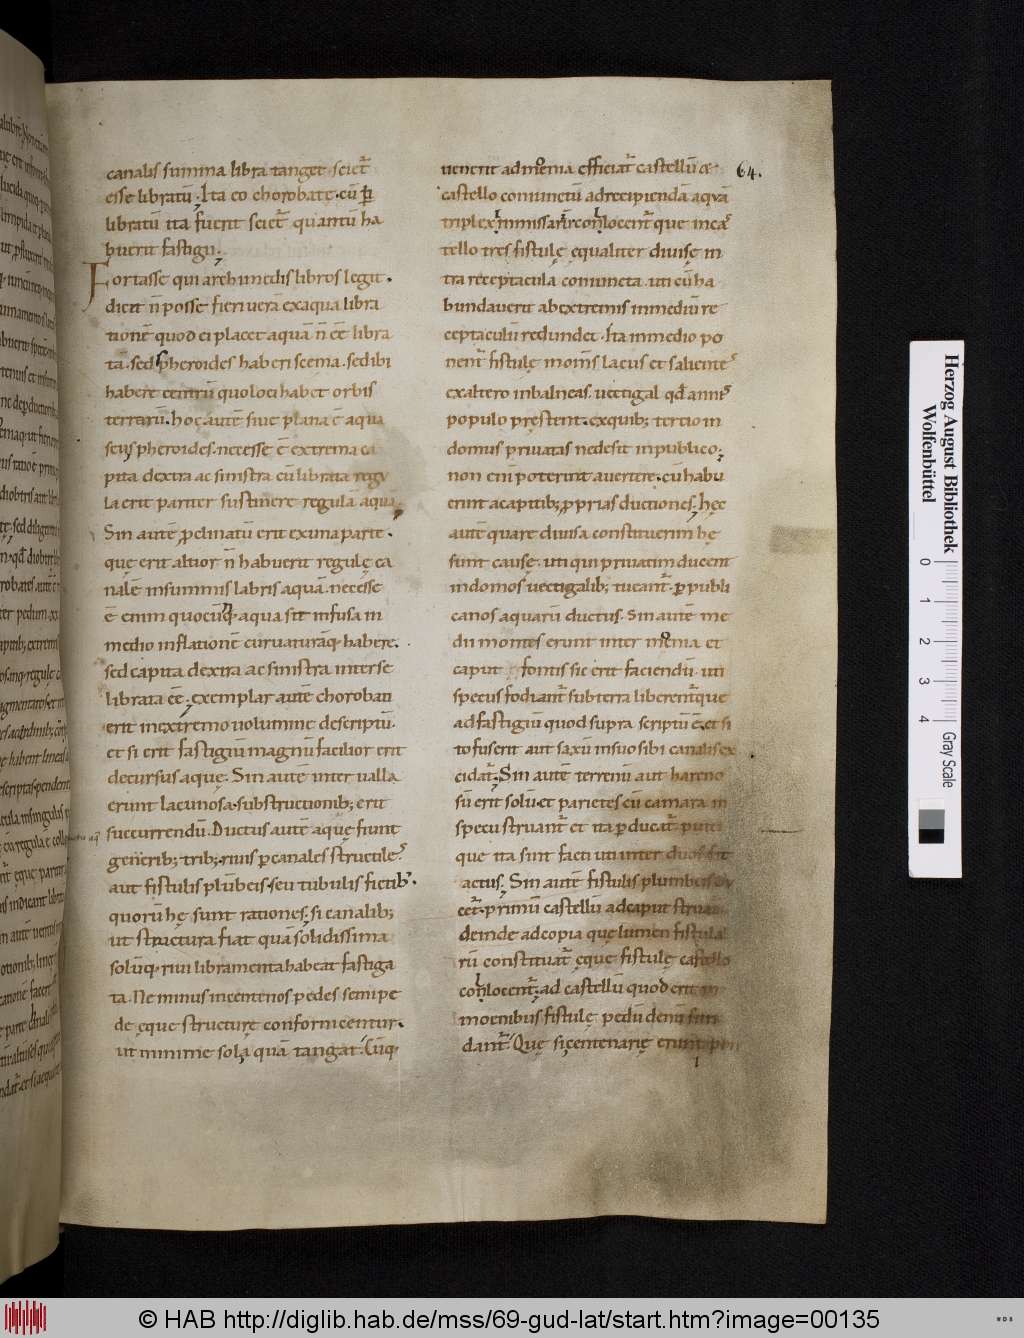 canalis summa libra tanget sciet᷑
esse libratū. Ita eo chorobate. cū ꝑ
libratū ita fuerit sciet᷑ quantū ha
buerit fastigii.
Fortasse qui archimedis libros legit.
dicit n̄ posse fieri uerā exaqua libra
tionē quod ei placet aquā n̄ eē libra
tā. sed spheroides haberi scema. sedibi
habere centrū quo loci habet orbis
terrarū. hoc autē siue plana ē aqua
seu spheroides. necesse ē extrema ca
pita dextra ac sinistra cū librata regu
la erit pariter sustinere regulā aquā
Sin autē ꝓclinatū erit ex una parte.
que erit altior n̄ habuerit regulę ca
nalē insummis labris aquā. necesse
ē enim quocūq; aqua sit infusa in
medio inflationē curuaturāq; habere.
sed capita dextra ac sinistra inter se
librata eē. exemplar autē chorobati
erit in extremo uolumine descriptū.
et si erit fastigiū magnū facilior erit
decursus aque. Sin autē inter ualla
erunt lacunosa. substructionib; erit
succurrendū. Ductus autē aquę fiunt
generib; trib; riuis ꝑ canales structiles
aut fistulis plūbeis. seu tubulis fictib᷒.
quorū hę sunt rationes. si canalib;
ut structura fiat quā solidissima
solūq; riui libramenta habeat fastiga
ta. Ne minus in centenos pedes semipe
de. ęque structurę confornicentur.
ut minime sol aquā tangat. Cūq;
uenerit ad moenia efficiat᷑ castellū &
castello coniunctū ad recipiendā aqvā
triplex inmissariū conlocent᷑que in cas
tello tres fistulę ęqualiter diuisę in
tra receptacula coniuncta. uti cū ha
bundauerit ab extremis in mediū re
ceptaculū redundet. Ita in medio po
nent᷑ fistulę in omīs lacus et salientes
ex altero in balneas. uectigal qd̄ annis
populo prestent. ex quib; tertio in
domus priuatas ne desit in publico;
non enī poterint auertere. cū habu
erint a capitib; ꝓprias ductiones. hęc
autē quare diuisa constituerim hę
sunt causę. uti qui priuatim ducent
in domos uectigalib; tueant᷑ ꝑ publi
canos aquarū ductus. Sin autē me
dii montes erunt inter moenia et
caput fontis sic erit faciendū. uti
specus fodiant᷑ sub terra liberent᷑que
ad fastigiū quod supra scriptū ē. et si
tofus erit aut saxū in suo sibi canalis ex
cidat᷑. Sin autē terrenū aut hareno
sū erit solū. et parietes cū camara in
specu struant᷑ et ita ꝑducat᷑. putei
que ita sint facti uti inter duos sit
actus. Sin autē fistulis plumbeis du
cet᷑. primū castellū ad caput struat᷑
deinde ad copia que lumen fistula
rū constituat᷑ ęque fistulę castello
conlocent᷑. ad castellū quod erit in
moenibus fistulę pedū denū fun
dant᷑. Quę si centenarię erunt pon
64.
Herzog August Bibliothek
Wolfenbüttel
0 1 2 3 4
Gray Scale
© HAB http://diglib.hab.de/mss/69-gud-lat/start.htm?image=00135